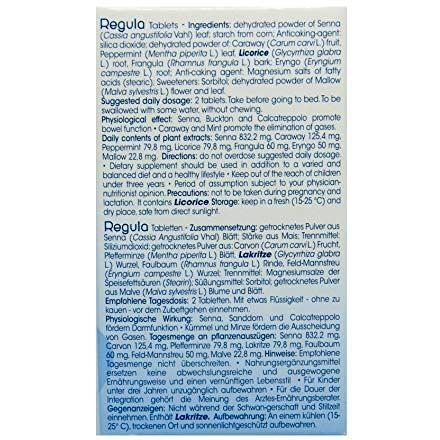 Regula Tablets - Ingredients: dehydrated powder of Senna
(Cassia angustifolia Vahl) leaf; starch from corn; Anticaking-agent:
silica dioxide; dehydrated powder of: Caraway (Carum carvi L.) fruit,
Peppermint (Mentha piperita L.) leaf, Licorice (Glycyrrhiza glabra
L.) root, Frangula (Rhamnus frangula L.) bark; Eryngo (Eryngium
campestre L.) root; Anti-caking agent: Magnesium salts of fatty
acids (stearic); Sweeteners: Sorbitol; dehydrated powder of Mallow
(Malva sylvestris L.) flower and leaf.
Suggested daily dosage: 2 tablets. Take before going to bed. To be
swallowed with some water, without chewing.
Physiological effect: Senna, Buckton and Calcatreppolo promote
bowel function • Caraway and Mint promote the elimination of gases.
Daily contents of plant extracts: Senna 832,2 mg, Caraway 125,4 mg,
Peppermint 79,8 mg, Licorice 79,8 mg, Frangula 60 mg, Eryngo 50 mg,
Mallow 22,8 mg. Directions: do not overdose suggested daily dosage.
• Dietary supplement should be used in addition to a varied and
balanced diet and a healthy lifestyle • Keep out of the reach of children
under three years • Period of assumption subject to your physician-
nutritionist opinion. Precautions: not to be taken during pregnancy and
lactation. It contains Licorice. Storage: keep in a fresh (15-25 °C) and
dry place, safe from direct sunlight.
Regula Tabletten - Zusammensetzung: getrocknetes Pulver aus
Senna (Cassia Angustifolia Vhal) Blätt; Stärke aus Mais; Trennmittel:
Siliziumdioxid; getrocknetes Pulver aus: Carvon (Carum carvi L.) Frucht,
Pfefferminze (Mentha piperita L.) Blätt, Lakritze (Glycyrrhiza glabra
L.) Wurzel, Faulbaum (Rhamnus frangula L.) Rinde, Feld-Mannstreu
(Eryngium campestre L.) Wurzel; Trennmittel: Magnesiumsalze der
Speisefettsäuren (Stearin); Süßungsmittel: Sorbitol; getrocknetes Pulver
aus Malve (Malva sylvestris L.) Blume und Blätt.
Empfohlene Tagesdosis: 2 Tabletten. Mit etwas Flüssigkeit - ohne zu
kauen - vor dem Zubettgehen einnehmen.
Physiologische Wirkung: Senna, Sanddorn und Calcatreppolo
fördern Darmfunktion • Kümmel und Minze fördern die Ausscheidung
von Gasen. Tagesmenge an pflanzenauszügen: Senna 832,2 mg,
Carvon 125,4 mg, Pfefferminze 79,8 mg, Lakritze 79,8 mg, Faulbaum
60 mg, Feld-Mannstreu 50 mg, Malve 22,8 mg. Hinweise: Empfohlene
Tagesmenge nicht überschreiten. • Nahrungsergänzungsmittel
ersetzen keine abwechslungsreiche und ausgewogene
Ernährungsweise und einen vernünftigen Lebensstil • Für Kinder
unter drei Jahren unzugänglich aufbewahren • Für die Dauer der
Integration gehört die Meinung des Arztes-Ernährungsberater.
Gegenanzeigen: Nicht während der Schwangerschaft und Stillzeit
einnehmen. Enthält Lakritze. Aufbewahrung: An einem kühlen (15-
25° C), trockenen Ort und sonnenlichtgeschützt aufbewahren.